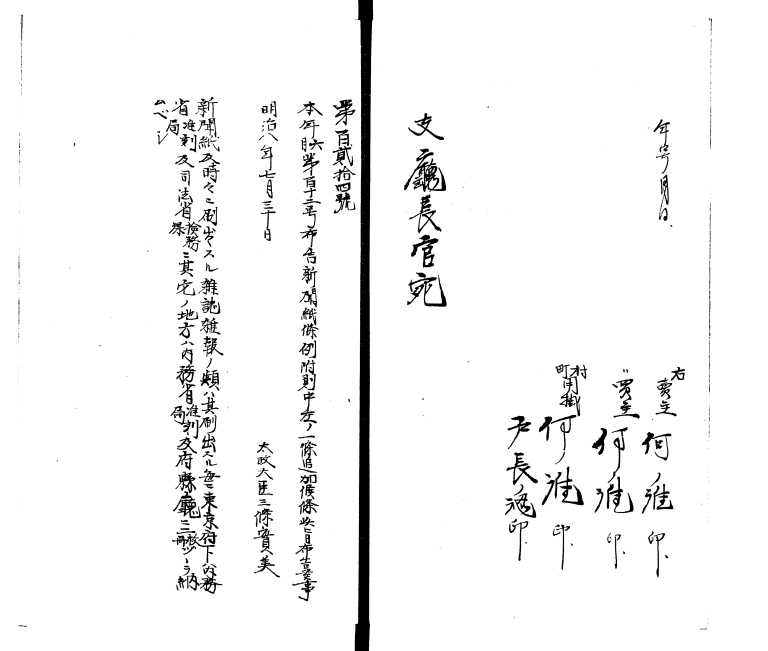 年号月日
右
賣主 何ノ誰 印
〃買主 何ノ誰 印
村町用掛 何ノ誰 印
戸長 印
支廳長官宛
第百貳拾四號
本年六月第百十二号布告新聞紙條例附則中左ノ一條追加候條此旨布告候事
明治八年七月三十日
太政大臣三條實美
新聞紙及時々ニ刷出スル雑誌雑報ノ類ハ其刷出スル毎ニ東京府下ハ内務
省准刻局及司法省檢務課ニ其他ノ地方ハ内務省准刻局及府縣廳ニ二枚冊ツヽヲ納
ムベシ